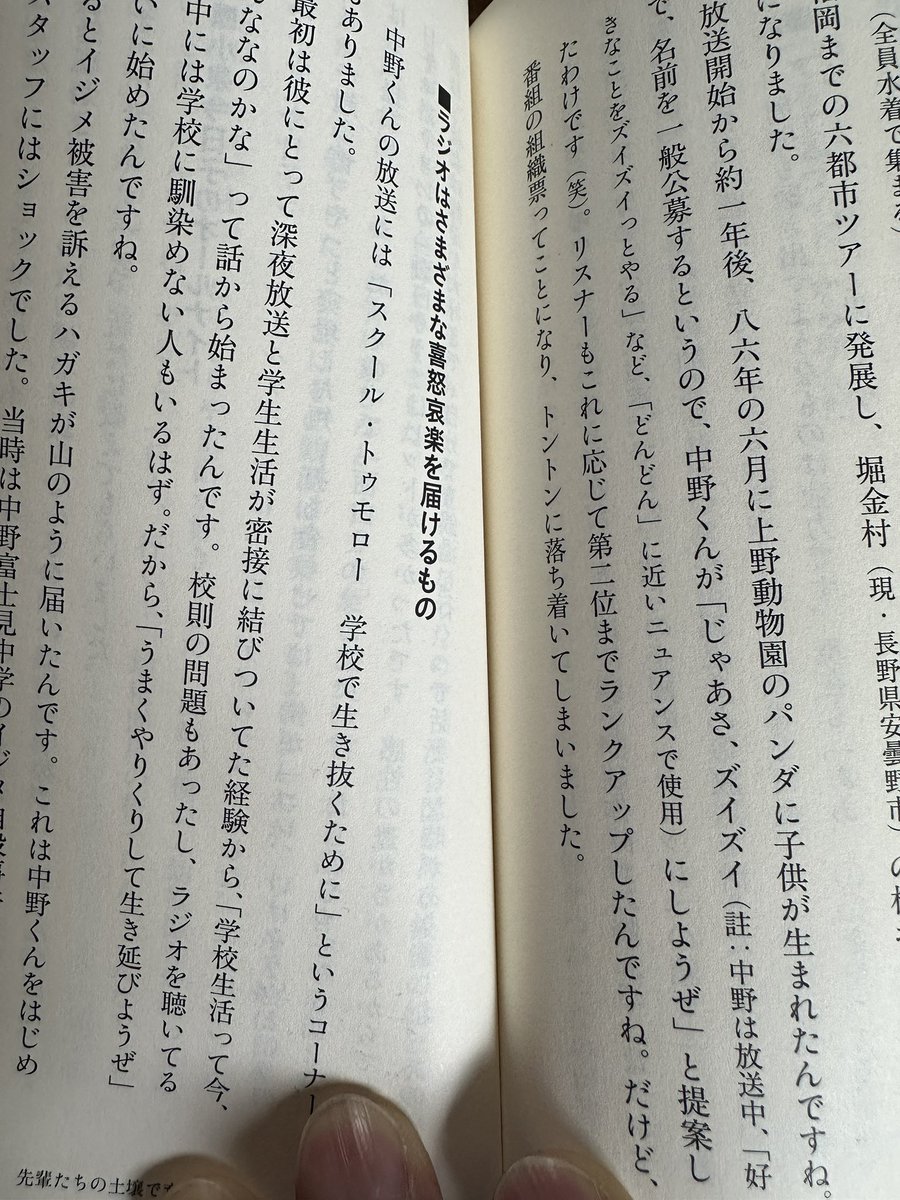 （全員水着で集まる）
岡までの六都市ツアーに発展し、堀金村（現・長野県安曇野市）の
になりました。
放送開始から約一年後、八六年の六月に上野動物園のパンダに子供が生まれたんですね
で、名前を一般公募するというので、中野くんが「じゃあさ、ズイズイ（註：中野は放送中、「好
きなことをズイズイっとやる」など、「どんどん」に近いニュアンスで使用）にしようぜ」と提案し
たわけです（笑）。リスナーもこれに応じて第二位までランクアップしたんですね。だけど、
番組の組織票ってことになり、トントンに落ち着いてしまいました。
■ラジオはさまざまな喜怒哀楽を届けるもの
中野くんの放送には「スクール・トゥモロー　学校で生き抜くために」というコーナー
もありました。
最初は彼にとって深夜放送と学生生活が密接に結びついてた経験から、「学校生活って今、
んなのかな」って話から始まったんです。校則の問題もあったし、ラジオを聴いてる
中には学校に馴染めない人もいるはず。だから、「うまくやりくりして生き延びようぜ」
いに始めたんですね。
るとイジメ被害を訴えるハガキが山のように届いたんです。これは中野くんをはじめ
スタッフにはショックでした。当時は中野富士見中学のイジメ自殺事
先輩たちの土壌で